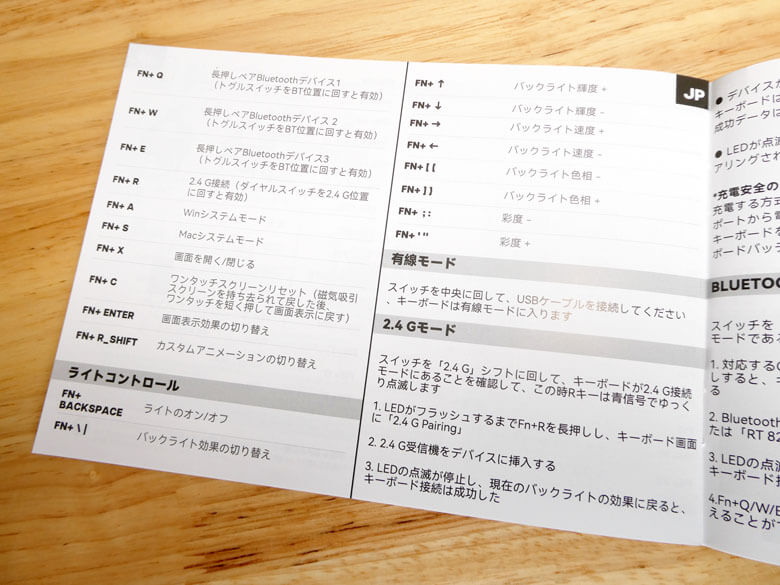 FN+ Q
長押しペアBluetoothデバイス1
（トグルスイッチをBT位置に回すと有効）
FN+ W
長押しペアBluetoothデバイス 2
（トグルスイッチをBT位置に回すと有効）
FN+ E
長押しペアBluetoothデバイス3
（トグルスイッチをBT位置に回すと有効）
FN+ R
2.4 G接続（ダイヤルスイッチを2.4 G位置
に回すと有効）
FN+ A
Winシステムモード
FN+ S
Macシステムモード
FN+ X
画面を開く/閉じる
FN+ C
ワンタッチスクリーンリセット（磁気吸引
スクリーンを持ち去られて戻した後、
ワンタッチを短く押して画面表示に戻す）
FN+ ENTER
画面表示効果の切り替え
FN+ R_SHIFT
カスタムアニメーションの切り替え
ライトコントロール
FN+
BACKSPACE
ライトのオン/オフ
FN+ \ |
バックライト効果の切り替え
FN+ ↑
バックライト輝度 +
FN+ ↓
バックライト輝度 -
FN+ →
バックライト速度 +
FN+ ←
バックライト速度 -
FN+ [ {
バックライト色相 -
FN+ ] }
バックライト色相 +
FN+ ; :
彩度 -
FN+ ' "
彩度 +
JP
有線モード
スイッチを中央に回して、USBケーブルを接続してください
、キーボードは有線モードに入ります
2.4 Gモード
スイッチを「2.4 G」シフトに回して、キーボードが2.4 G接続
モードにあることを確認して、この時Rキーは青信号でゆっく
り点滅します
1. LEDがフラッシュするまでFn+Rを長押しし、キーボード画面
に「2.4 G Pairing」
2. 2.4 G受信機をデバイスに挿入する
3. LEDの点滅が停止し、現在のバックライトの効果に戻ると、
キーボード接続は成功した
● デバイスが
キーボードは
成功データは
● LEDが点滅
アリングされ
*充電安全の
充電する方式
ポートから電
キーボードを
ボードバッテ
BLUETOO
スイッチを
モードであ
1. 対応するQ
しすると、
る
2. Bluetooth
たは「RT 82
3. LEDの点滅
キーボード接
4.Fn+Q/W/E
えることがで